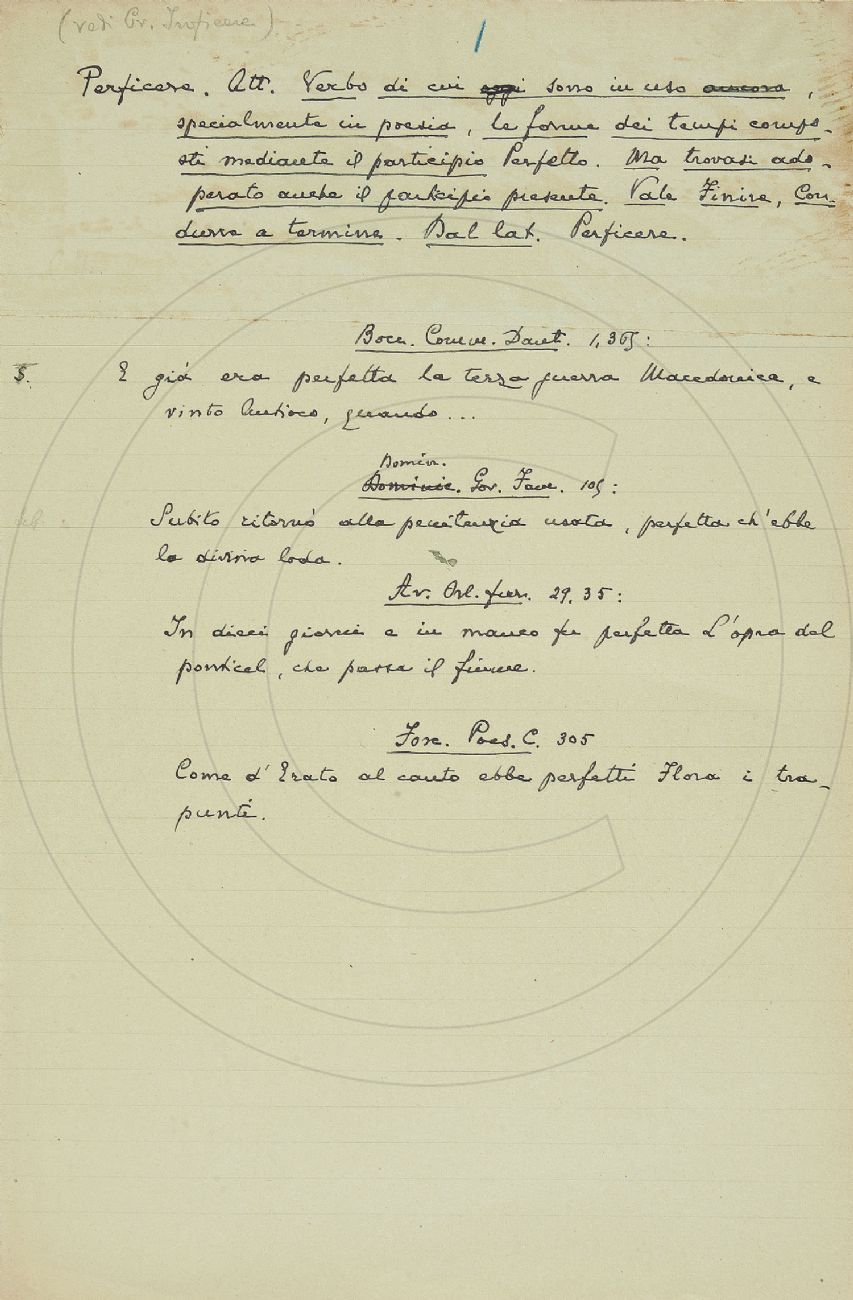 (vedi Cr.
1
Perficere. Att. Verbo di cui oggi sono in uso ancora,
specialmente in poesia, le forme dei tempi compo-
sti mediante il participio Perfetto. Ma trovasi ado-
perato anche il participio presente. Vale Finire, Con-
durre a termine. Dal lat. Perficere.
Bocc. Comm. Dant. 1, 365:
5. E già era perfetta la terza guerra Macedonica, e
vinto Antioco, quando...
Domin.
Dominic. Gov. Fam. 105:
Subito ritornò alla penitenzia usata, perfetta ch'ebbe
la divina loda.
Ar. Orl. fur. 29. 35:
In dieci giorni e in manco fu perfetta L'opra del
ponticel, che passa il fiume.
Fosc. Poes. C. 305
Come d'Erato al canto ebbe perfetti Flora i tra-
punti.